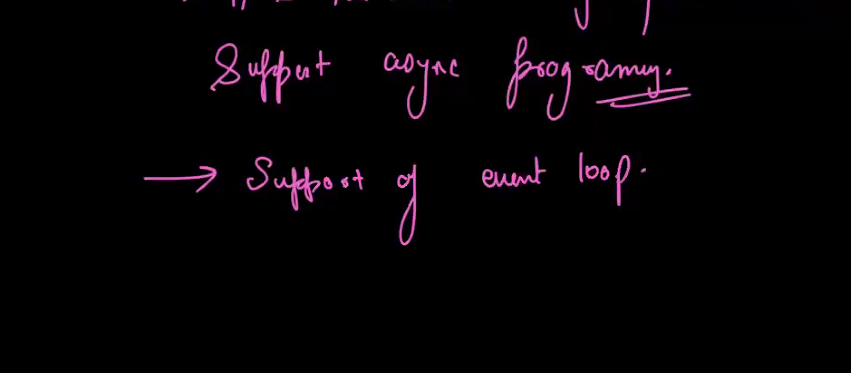 Support async programing.
→ Support of event loop.